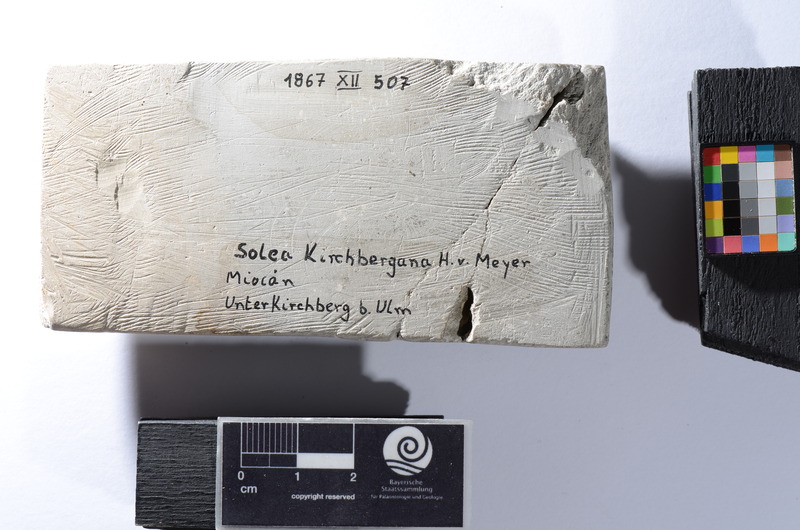 1867 XII 507
Solea Kirchbergana H. v. Meyer
Miocän
Unterkirchberg b. Ulm
0 1 2
cm
copyright reserved
Bayerische
Staatssammlung
für Paläontologie und Geologie